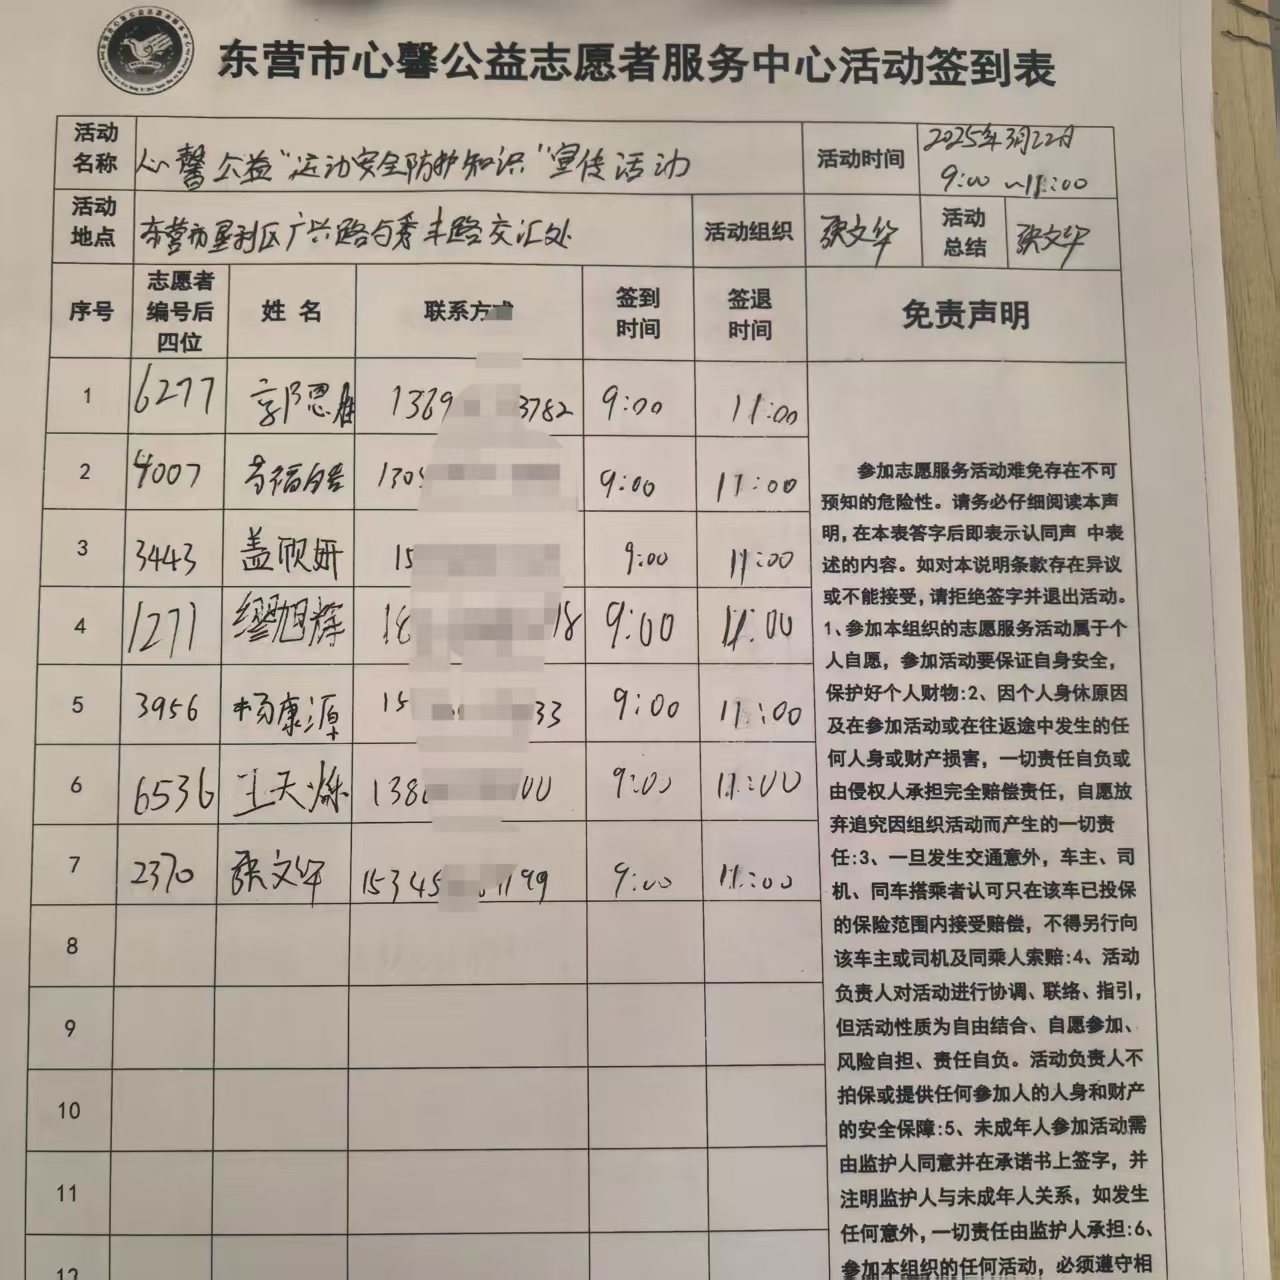 东营市心馨公益志愿者服务中心活动签到表
活动名称 心馨公益"运动安全防护知识"宣传活动 活动时间 2025年3月22日 9:00~11:00
活动地点 东营市垦利区广兴路与秀丰路交汇处 活动组织 张文华 活动总结 张文华
序号 志愿者编号后四位 姓名 联系方式 签到时间 签退时间 免责声明
1 6277 郭恩 1369 3782 9:00 11:00
2 4007 130 9:00 11:00
3 3443 盖欣妍 15 9:00 11:00
4 1271 缪旭辉 18 18 9:00 11:00
5 3956 杨康源 15 33 9:00 11:00
6 6536 王天烁 138 00 9:00 11:00
7 2370 张文华 15345 199 9:00 11:00
8
9
10
11
12
参加志愿服务活动难免存在不可
预知的危险性。请务必仔细阅读本声
明,在本表答字后即表示认同声 中表
述的内容。如对本说明条款存在异议
或不能接受,请拒绝签字并退出活动。
1、参加本组织的志愿服务活动属于个
人自愿，参加活动要保证自身安全，
保护好个人财物:2、因个人身休原因
及在参加活动或在往返途中发生的任
何人身或财产损害，一切责任自负或
由侵权人承担完全赔偿责任，自愿放
弃追究因组织活动而产生的一切责
任:3、一旦发生交通意外，车主、司
机、同车搭乘者认可只在该车已投保
的保险范围内接受赔偿，不得另行向
该车主或司机及同乘人索赔:4、活动
负责人对活动进行协调、联络、指引，
但活动性质为自由结合、自愿参加、
风险自担、责任自负。活动负责人不
拍保或提供任何参加人的人身和财产
的安全保障:5、未成年人参加活动需
由监护人同意并在承诺书上签字，并
注明监护人与未成年人关系，如发生
任何意外,一切责任由监护人承担:6、
参加本组织的任何活动，必须遵守相